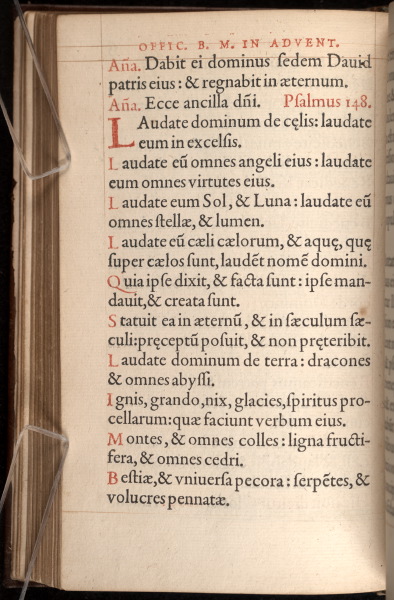 OFFIC. B. M. IN ADVENT.
Aña. Dabit ei dominus ſedem Dauid
patris eius : & regnabit in æternum.
Aña. Ecce ancilla dñi. Pſalmus 148.
L Audate dominum de cęlis: laudate
eum in excelſis.
Laudate eū omnes angeli eius : laudate
eum omnes virtutes eius.
Laudate eum Sol, & Luna : laudate eū
omnes ſtellæ, & lumen.
Laudate eū cæli cælorum, & aquę, quę
ſuper cælos ſunt, laudēt nomē domini.
Quia ipſe dixit, & facta ſunt : ipſe man-
dauit, & creata ſunt.
Statuit ea in æternū, & in ſæculum ſæ-
culi: pręceptū poſuit, & non pręteribit.
Laudate dominum de terra : dracones
& omnes abyſſi.
Ignis, grando, nix, glacies, ſpiritus pro-
cellarum: quæ faciunt verbum eius.
Montes, & omnes colles : ligna fructi-
fera, & omnes cedri.
Beſtiæ, & vniuerſa pecora : ſerpētes, &
volucres pennatæ.